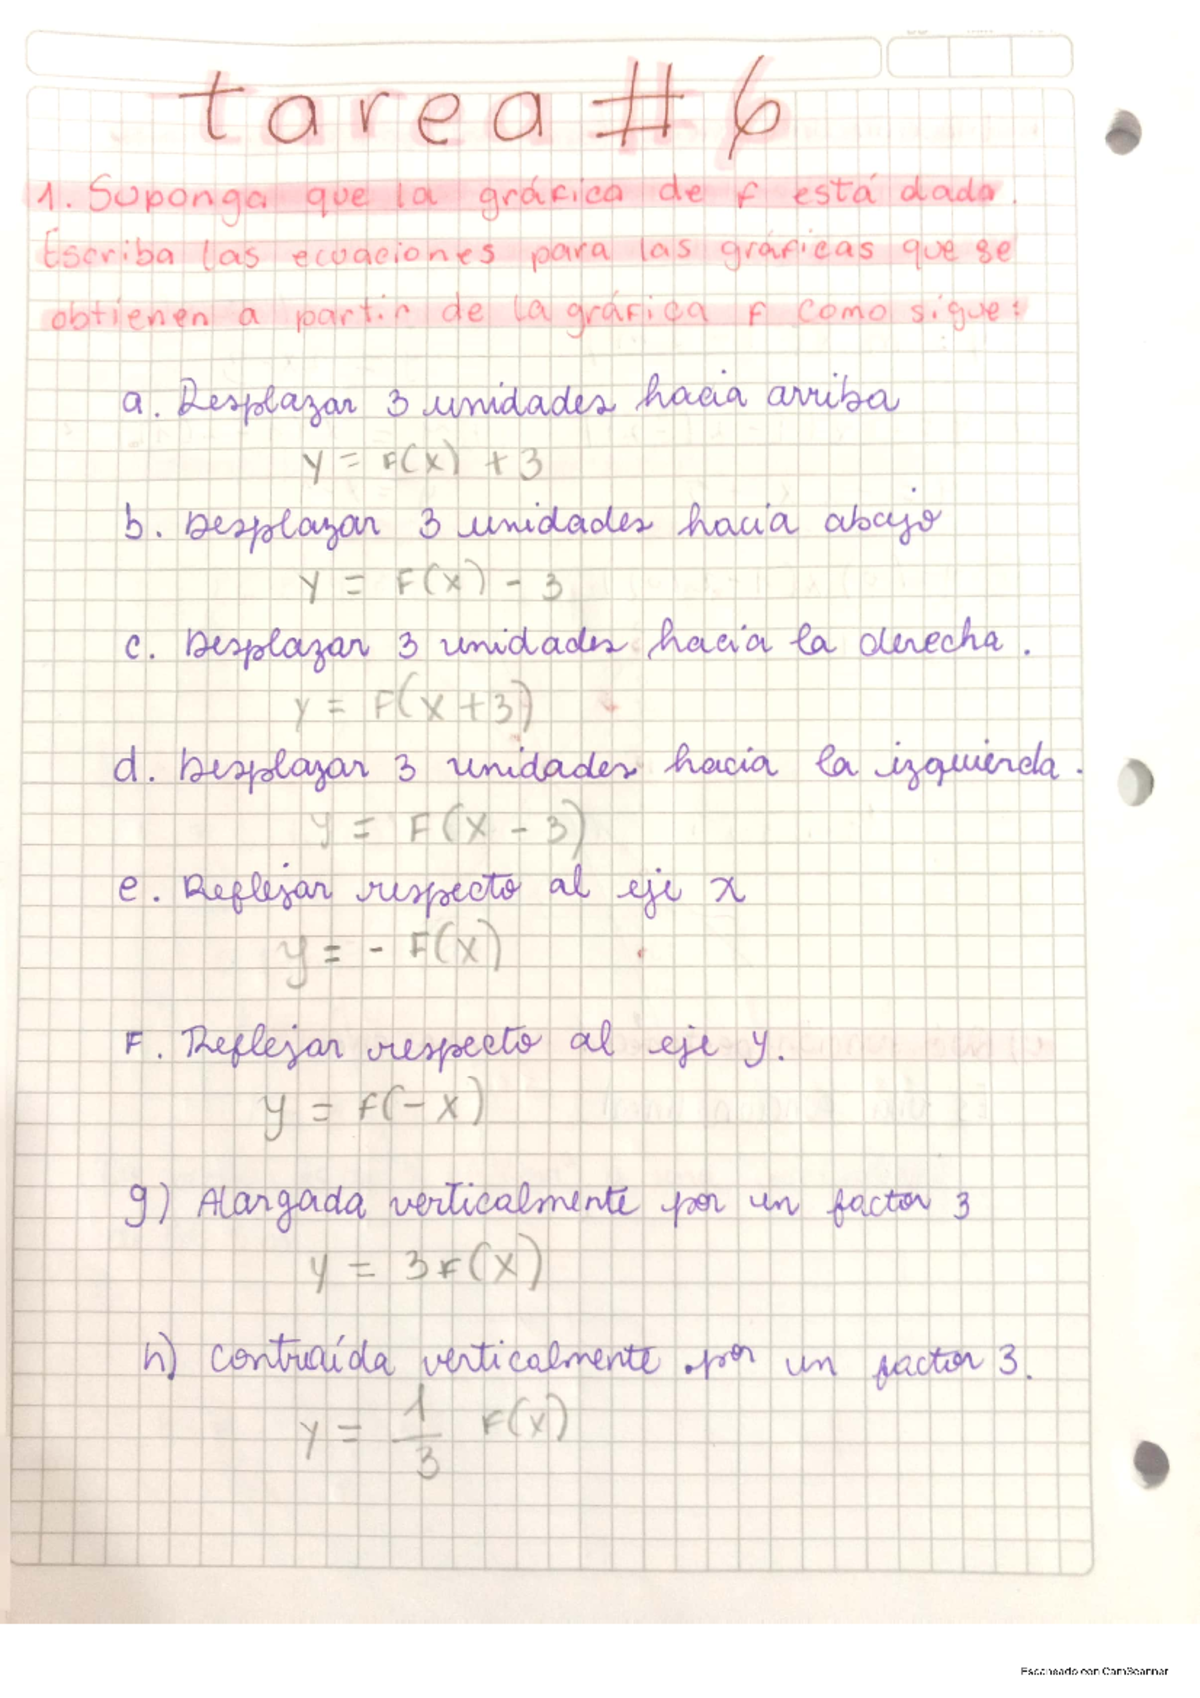 tarea # 6
1. Suponga que la gráfica de f está dada.
Escriba las ecuaciones para las gráficas que se
obtienen a partir de la gráfica f como sigue:
a. Desplazar 3 unidades hacia arriba
y = f(x) + 3
b. Desplazar 3 unidades hacia abajo
y = f(x) - 3
c. Desplazar 3 unidades hacia la derecha.
y = f(x+3)
d. Desplazar 3 unidades hacia la izquierda.
y = f(x - 3)
e. Reflejar respecto al eje x
y = - f(x)
f. Reflejar respecto al eje y.
y = f(-x)
g) Alargada verticalmente por un factor 3
y = 3f(x)
h) contraída verticalmente por un factor 3.
y = 1/3 f(x)
Escaneado con CamScanner